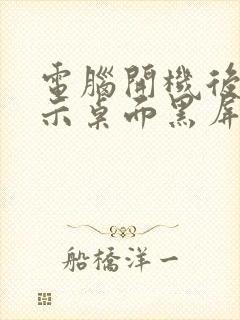 電腦開機後
示桌面黑屏
船橋洋一